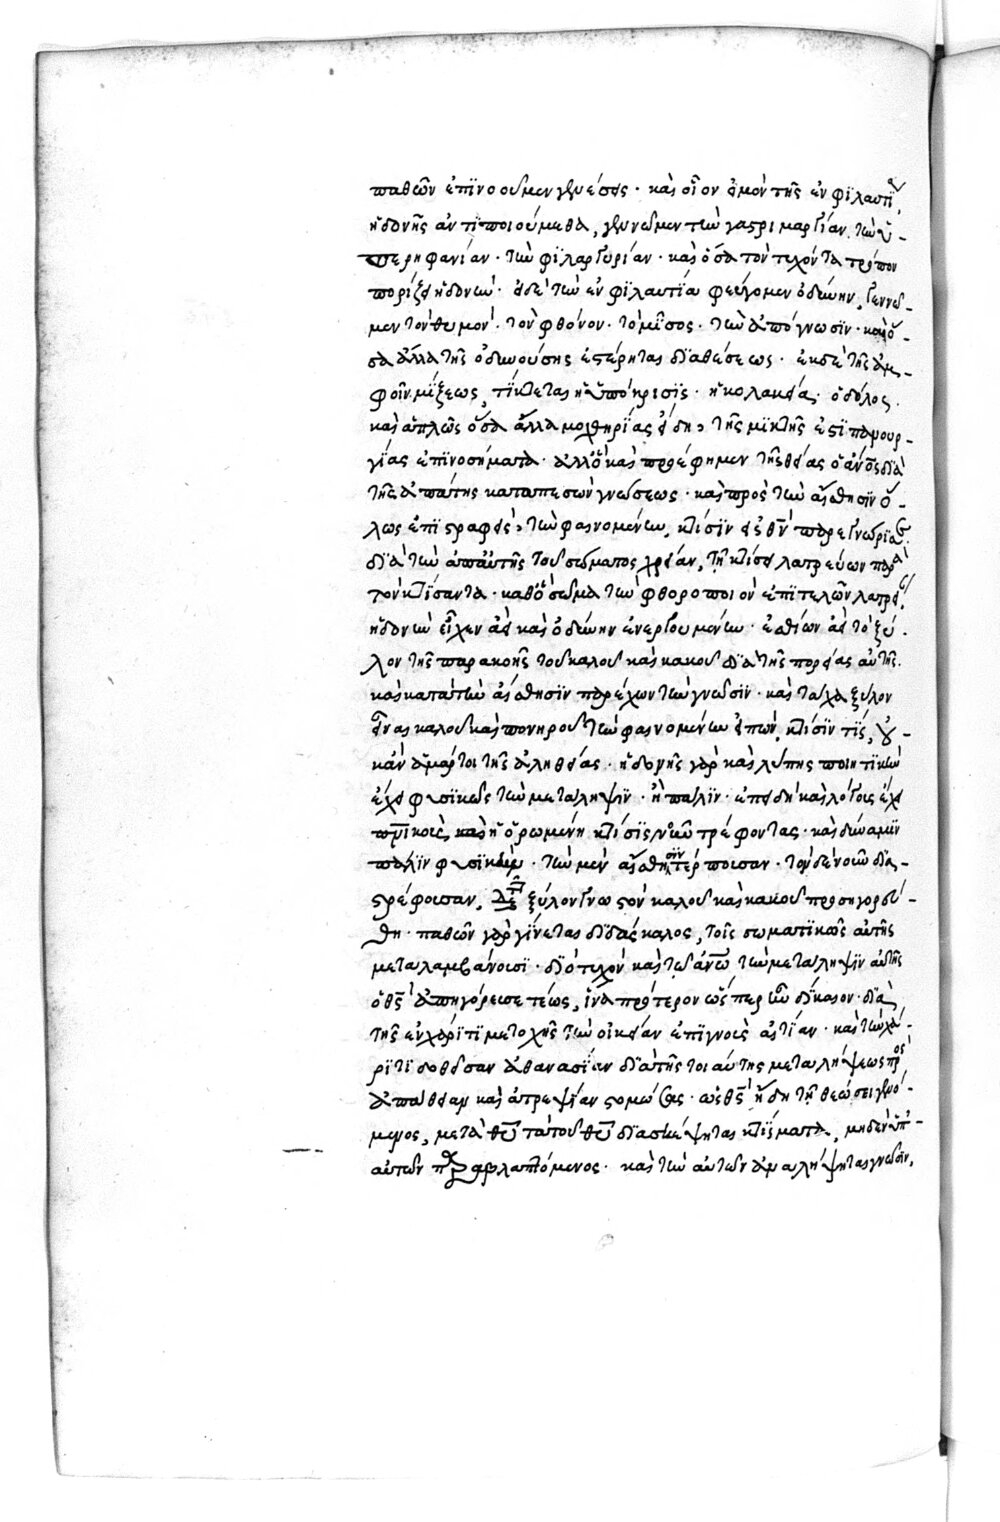 παθῶν ἐπϊνοοῦμεν γενέσεις · καὶ οἷον εἰ μὲν τῆς ἐν φϊλαυτΐα
ἡδονῆς ἀντϊποιούμεθα, γεννῶμεν τὴν γαστριμαργίαν, τὴν ὑ-
περηφανίαν · τὴν φϊλαργυρίαν · καὶ ὅσα τὸν τυχόντα τρόπον
πορίζει ἡδονὴν · εἰ δὲ τὴν ἐν φϊλαυτΐα φεύγομεν ὀδύνην, γεννῶ-
μεν τὸν θυμόν · τὸν φθόνον · τὸ μῖσος · τὴν ἀπόγνωσϊν · καὶ ὅ-
σα ἄλλα τῆς ὀδυνούσης ἐστέρηται δϊαθέσεως · ἐκ δὲ τῆς ἀμ-
φοῖν μίξεως, τΐκτεται ἡ ὑπόκρισϊς · ἡ κολακεία · ὁ δόλος ·
καὶ ἁπλῶς ὅσα ἄλλα μοχθηρίας εἴδη, τῆς μϊκτῆς ἐστϊ πανουρ-
γίας ἐπϊνοήματα · ἀλλ' ὃ καὶ προέφημεν τῆς θείας ὁ ἄνθρωπος διὰ
τῆς ἀπάτης καταπεσὼν γνώσεως · καὶ πρὸς τὴν αἴσθησϊν ὅ-
λως ἐπϊστραφεὶς, τῶν φαινομένων, κτίσϊν
δϊὰ τὴν ἀπ' αὐτῆς τοῦ σώματος χρείαν, τῇ κτίσει λατρεύων παρὰ
τὸν κτΐσαντα · καθ' ὃ σῶμα τὴν φθοροποιὸν ἐπϊτελῶν λατρεί
ἡδονὴν εἶχεν ἀεὶ καὶ ὀδύνην ἐνεργουμένην · ἐσθίων ἀεὶ τὸ ξύ-
λον τῆς παρακοῆς τοῦ καλοῦ καὶ κακοῦ δϊὰ τῆς πορείας αὐτῆς
καὶ κατὰ τὴν αἴσθησϊν παρέχων τὴν γνῶσϊν · καὶ τάχα ξύλον
εἶναι καλοῦ καὶ πονηροῦ τῶν φαινομένων εἰπὼν, κτίσϊν τϊς, οὐ-
κ ἂν ἁμάρτοι τῆς ἀληθείας · ἡδονῆς γὰρ καὶ λύπης ποιητϊκὴν
ἔχει φυσϊκῶς τὴν μετάληψϊν · ἢ πάλϊν · ἐπειδὴ καὶ λόγους ἔχει
πνευματϊκοὺς καὶ ἡ ὁρωμένη κτίσϊς νοῦν τρέφοντας · καὶ δύναμϊν
πάλϊν φυσϊκὴν · τὴν μὲν αἴσθησϊν τέρπουσαν · τὸν δὲ νοῦν δϊα-
στρέφουσαν, ξύλον γνωστὸν καλοῦ καὶ κακοῦ προσηγορεύ-
θη · παθῶν γὰρ γίνεται δϊδάσκαλος, τοῖς σωματϊκῶς αὐτῆς
μεταλαμβάνουσϊ · δϊὸ τυχὸν καὶ τῷ ἀνθρώπῳ τὴν μετάληψϊν αὐτῆς
ὁ θεὸς ἀπηγόρευσε τέως, ἵνα πρότερον ὥσπερ ἦν δΐκαιον · δϊὰ
τῆς ἐν χάρϊτϊ μετοχῆς τὴν οἰκείαν ἐπϊγνοὺς αἰτΐαν · καὶ τὴν χά-
ρϊτϊ δοθεῖσαν ἀθανασΐαν δϊὰ τῆς τοιαύτης μεταλήψεως πρὸς
ἀπάθειαν καὶ ἀτρεψίαν στομώσας · ὡς θεὸς ἤδη τῇ θεώσει γενό-
μενος, μετὰ θεοῦ τὰ τοῦ θεοῦ δϊασκέψηται κτΐσματα, μηδὲν ὑπ'
αὐτῶν παραβλαπτόμενος · καὶ τὴν αὐτῶν ἀναλήψηται γνῶσϊν,